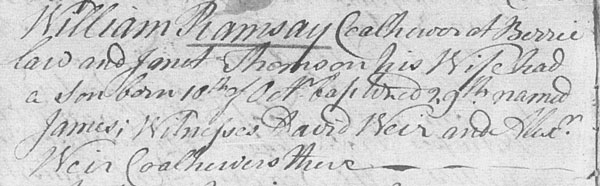 William Ramsay Coalhewer at Berrie
law and Janet Thomson his Wife had
a Son born 18th of Octr. baptized 29th. named
James; Witnesses David Weir and Alexr.
Weir Coalhewers there